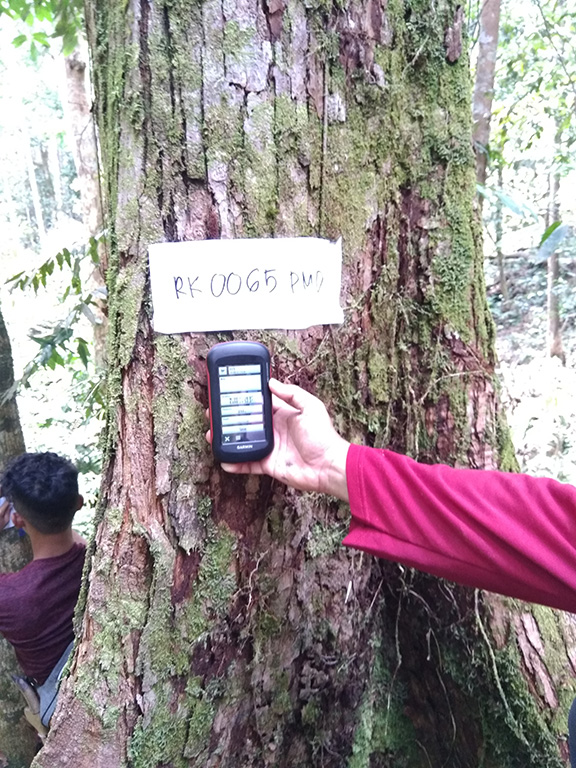 RK 0065 PMD
GARMIN